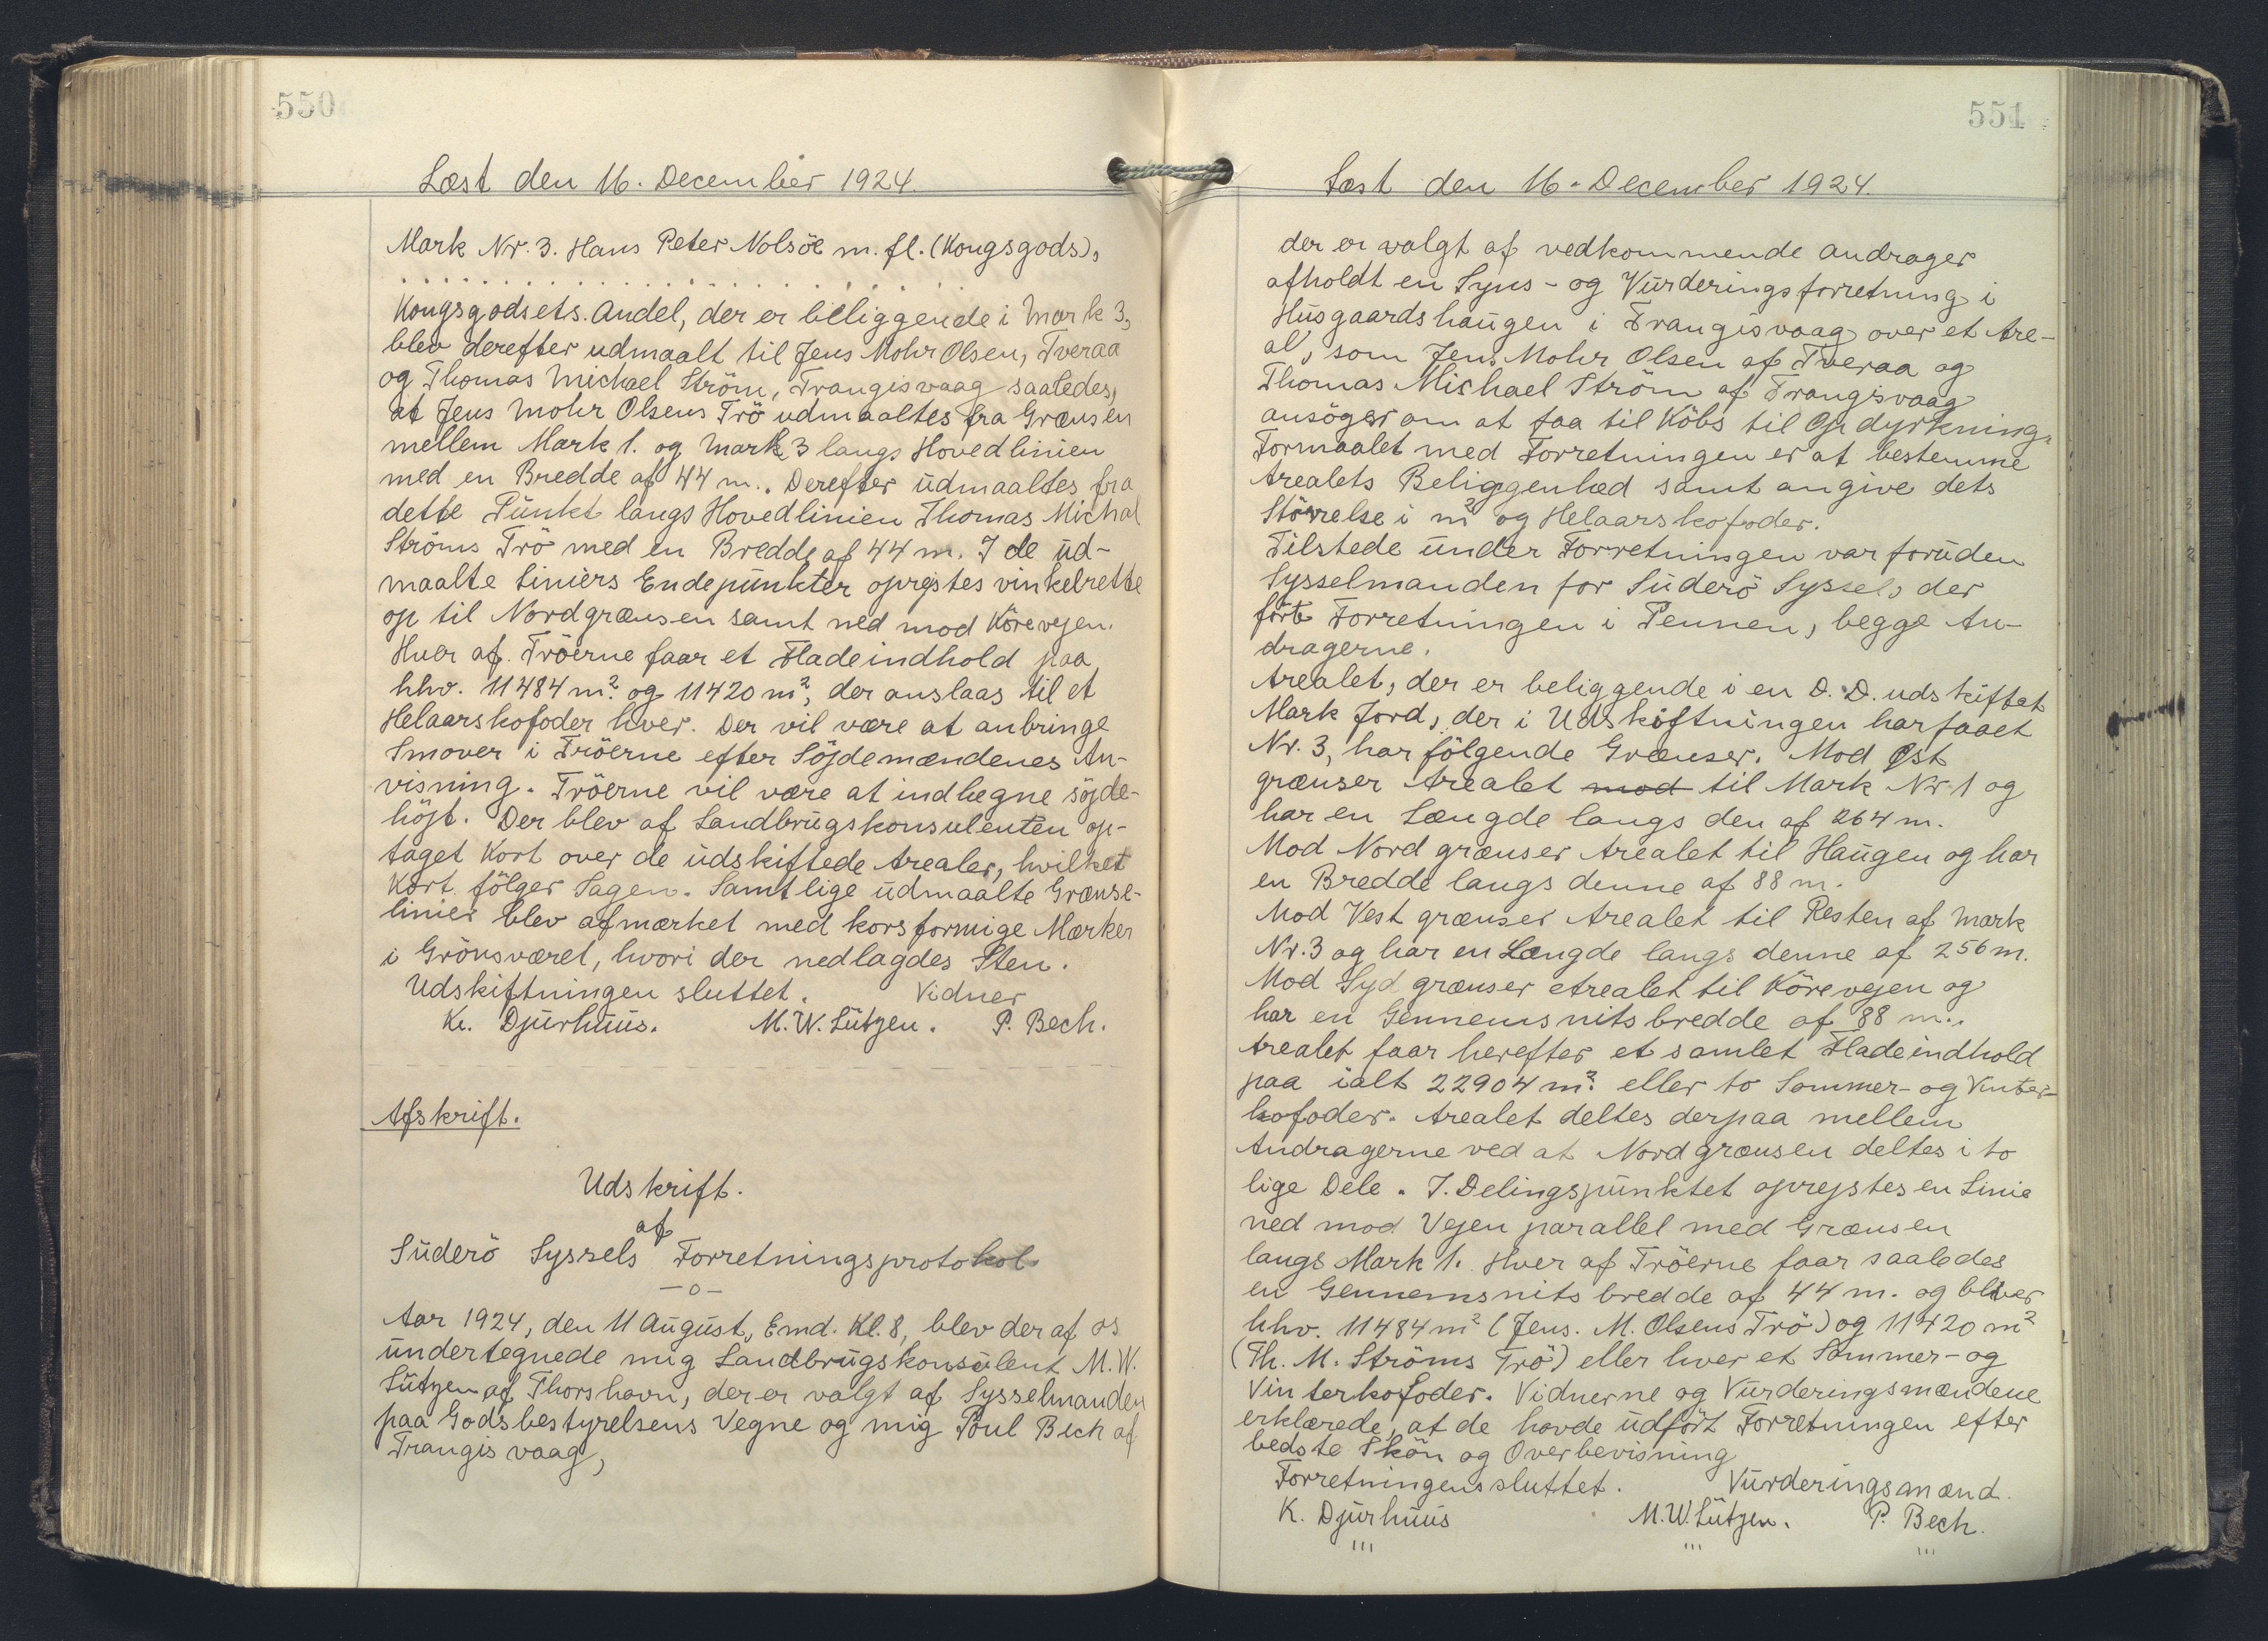 550
Læst den 16. December 1924.
Mark Nr. 3. Hans Peter Nolsöe m. fl. (Kongsgods),
. . . . . . . . . . . . . . . . . . . .
Kongsgodsets. Andel, der er beliggende i Mark 3,
blev derefter udmaalt til Jens Mohr Olsen, Tveraa
og Thomas Michael Ström, Trangisvaag saaledes,
at Jens Mohr Olsens Trö udmaaltes fra Grænsen
mellem Mark 1. og Mark 3 langs Hovedlinien
med en Bredde af 44 m.. Derefter udmaaltes fra
dette Punkt langs Hovedlinien Thomas Michal
Ströms Trö med en Bredde af 44 m. I de ud-
maalte Liniers Endepunkter oprejstes vinkelrette
op til Nordgrænsen samt ned mod Körevejen.
Hver af. Tröerne faar et Fladeindhold paa
hhv. 11484 m². og 11420 m², der anslaas til et
Helaarskofoder hver. Der vil være at anbringe
Smover i Tröerne efter Söjdemændenes An-
visning. Tröerne vil være at indhegne söjde-
höjt. Der blev af Landbrugskonsulenten op-
taget Kort over de udskiftede Arealer, hvilket
Kort fölger Sagen. Samtlige udmaalte Grænse-
linier blev afmærket med korsformige Mærker
i Grönsværet, hvori der nedlagdes Sten.
Udskiftningen sluttet. Vidner
K. Djurhuus. M. W. Lützen. P. Bech.
Afskrift.
Udskrift.
af
Suderö Syssels Forretningsprotokol
—o—
Aar 1924, den 11 August, Emd. Kl. 8, blev der af os
undertegnede mig Landbrugskonsulent M. W.
Lützen af Thorshavn, der er valgt af Sysselmanden
paa Godsbestyrelsens Vegne og mig Poul Bech af
Trangisvaag,
551
Læst den 16. December 1924.
der er valgt af vedkommende Andrager
afholdt en Syns- og Vurderingsforretning i
Husgaardshaugen i Trangisvaag over et Are-
al, som Jens Mohr Olsen af Tveraa og
Thomas Michael Ström af Trangsvaag
ansöger om at faa til Köbs til Opdyrkning.
Formaalet med Forretningen er at bestemme
Arealets Beliggenhed samt angive dets
Störrelse i m² og Helaarskofoder.
Tilstede under Forretningen var foruden
Sysselmanden for Suderö Syssel, der
förte Forretningen i Pennen, begge An-
dragerne.
Arealet, der er beliggende i en D. D. udskiftet
Mark Jord, der i Udskiftningen har faaet
Nr. 3, har fölgende Grænser. Mod Øst
grænser Arealet mod til Mark Nr. 1 og
har en Længde langs den af 264 m.
Mod Nord grænser Arealet til Haugen og har
en Bredde langs denne af 88 m.
Mod Vest grænser Arealet til Resten af Mark
Nr. 3 og har en Længde langs denne af 256 m.
Mod Syd grænser Arealet til Körevejen og
har en Gennemsnitsbredde af 88 m..
Arealet faar herefter et samlet Fladeindhold
paa ialt 22904 m². eller to Sommer- og Vinter-
kofoder. Arealet deltes derpaa mellem
Andragerne ved at Nordgrænsen deltes i to
lige Dele. I. Delingspunktet oprejstes en Linie
ned mod Vejen parallel med Grænsen
langs Mark 1. Hver af Tröerne faar saaledes
en Gennemsnitsbredde af 44 m. og bliver
hhv. 11484 m² (Jens. M. Olsens Trö) og 11420 m²
(Th. M. Ströms Trö) eller hver et Sommer- og
Vinterkofoder. Vidnerne og Vurderingsmændene
erklærede, at de havde udfört Forretningen efter
bedste Skön og Overbevisning
Forretningen sluttet. Vurderingsmænd.
K. Djurhuus M. W. Lützen. P. Bech.
''' ''' '''